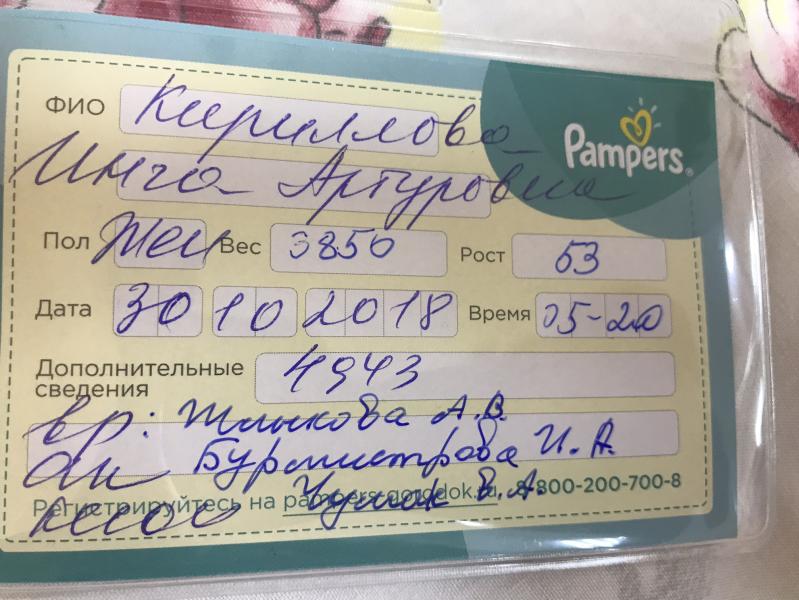 ФИО Кириллова
Pampers®
Инга Артуровна
Пол Жен Вес 3850 Рост 53
Дата 30 10 2018 Время 05-20
Дополнительные сведения 4943
вр: Жлыкова А.В.
Бурмистрова И.А
Регистрируйтесь на pampers.gorodok.ru 8-800-200-700-8
Чумок В.А.